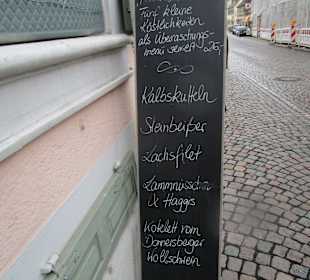 Fünf kleine
Köstlichkeiten
als Überraschungs-
menü serviert
Kalbskutteln
Steinbeißer
Lachsfilet
Lammnüsschen
& Haggis
Kotelett vom
Donnersberger
Wollschwein